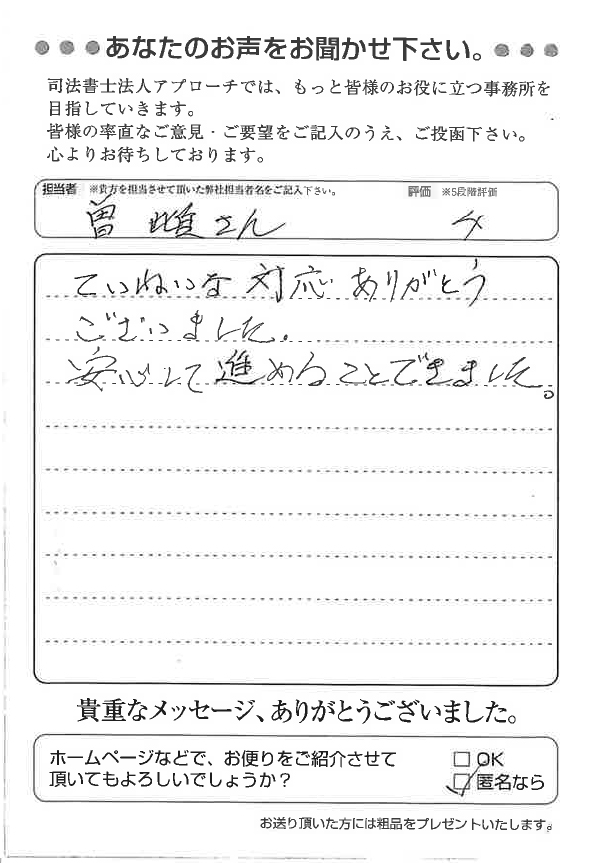 あなたのお声をお聞かせ下さい。
司法書士法人アプローチでは、もっと皆様のお役に立つ事務所を
目指していきます。
皆様の率直なご意見・ご要望をご記入のうえ、ご投函下さい。
心よりお待ちしております。
担当者 ※貴方を担当させて頂いた弊社担当者名をご記入下さい。 評価 ※5段階評価
曽 さん 4
ていねいな対応ありがとう
ございました.
安心して進めることできました。
貴重なメッセージ、ありがとうございました。
ホームページなどで、お便りをご紹介させて
頂いてもよろしいでしょうか？
OK
匿名なら
お送り頂いた方には粗品をプレゼントいたします。